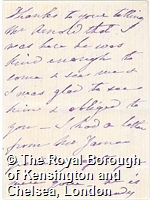 Thanks to your telling
Mr Arnold that I
was here he was
kind enough to
come & see me &
I was glad to see
him & obliged to
you – I had a letter
from Mr James
© The Royal Borough
of Kensington and
Chelsea, London